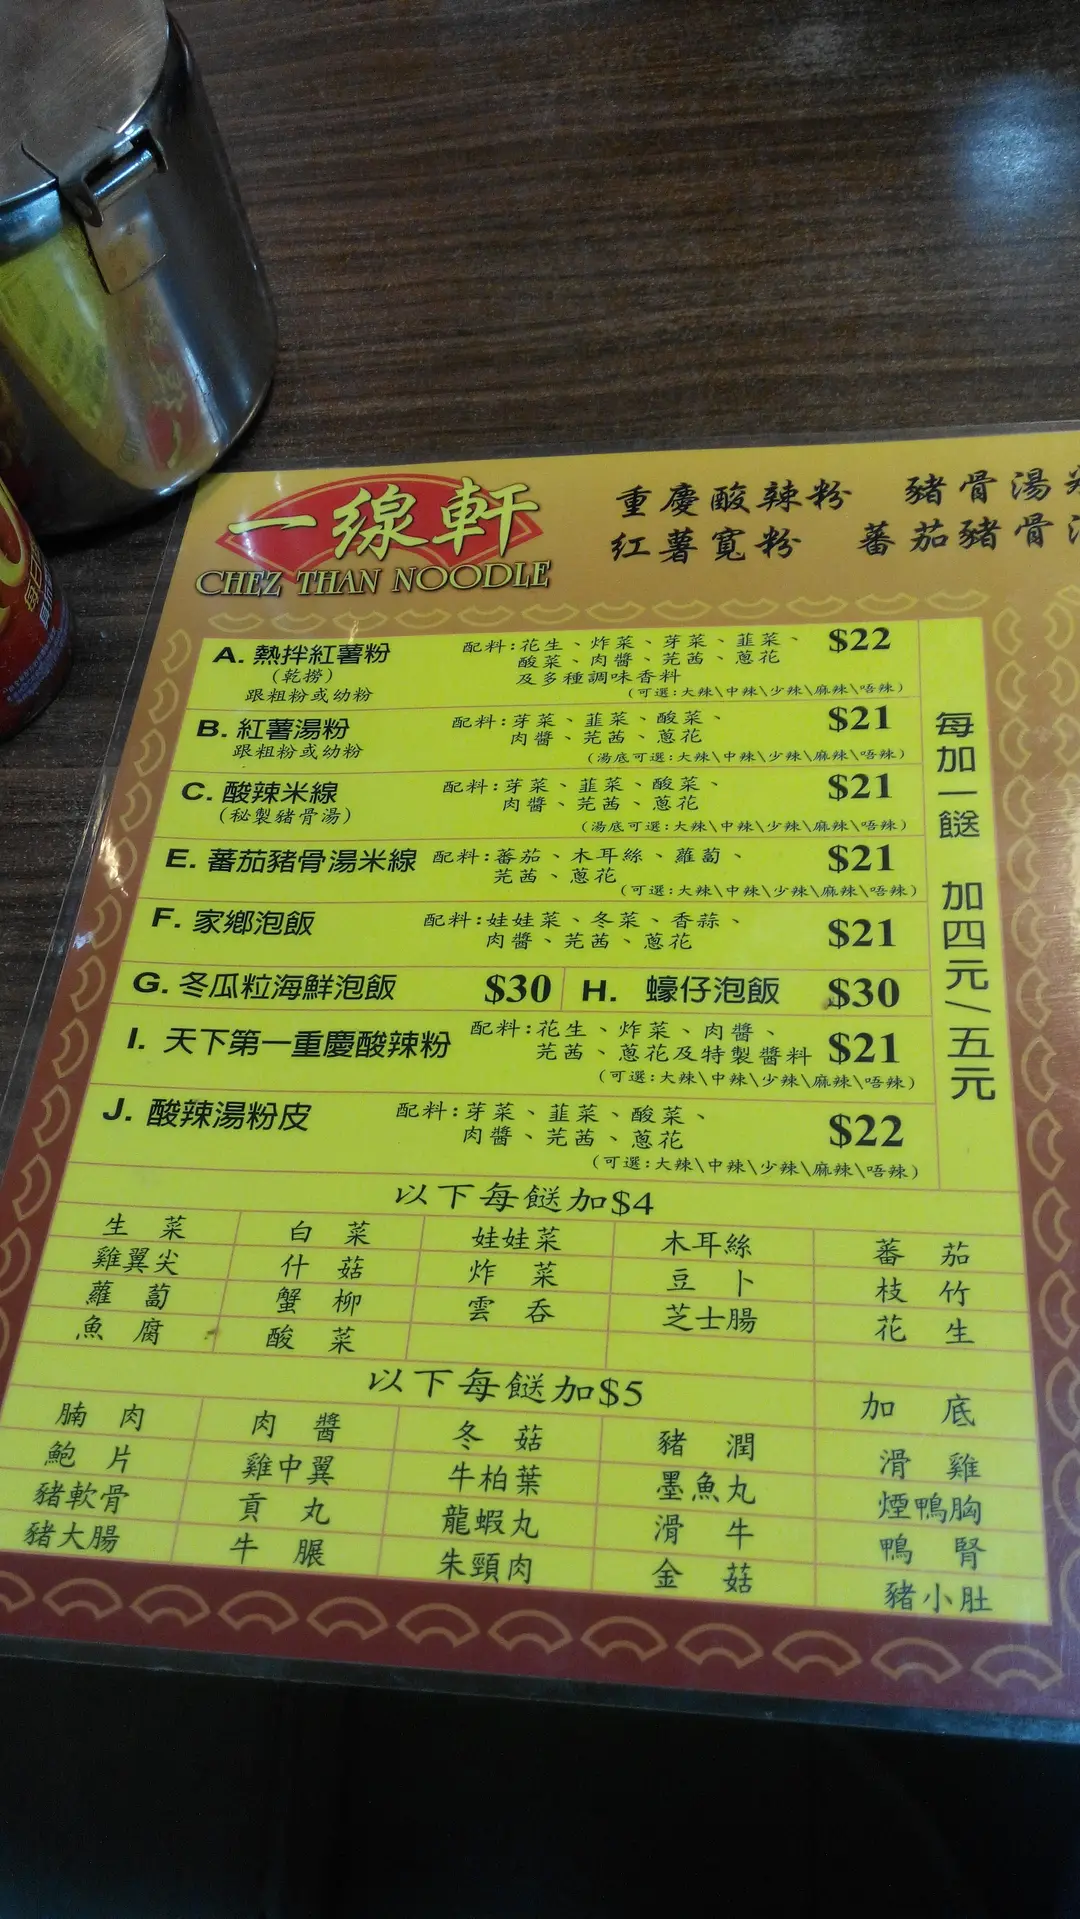 一線軒
CHEZ THAN NOODLE
重慶酸辣粉 豬骨湯
紅薯寬粉 蕃茄豬骨
A. 熱拌紅薯粉 配料:花生、炸菜、芽菜、韮菜、 $22
(乾撈) 酸菜、肉醬、芫茜、蔥花
跟粗粉或幼粉 及多種調味香料
(可選:大辣\中辣\少辣\麻辣\唔辣)
B. 紅薯湯粉 配料:芽菜、韮菜、酸菜、 $21
跟粗粉或幼粉 肉醬、芫茜、蔥花
(湯底可選:大辣\中辣\少辣\麻辣\唔辣)
C. 酸辣米線 配料:芽菜、韮菜、酸菜、 $21
(秘製豬骨湯) 肉醬、芫茜、蔥花
(湯底可選:大辣\中辣\少辣\麻辣\唔辣)
E. 蕃茄豬骨湯米線 配料:蕃茄、木耳絲、蘿蔔、 $21
芫茜、蔥花
(可選:大辣\中辣\少辣\麻辣\唔辣)
F. 家鄉泡飯 配料:娃娃菜、冬菜、香蒜、 $21
肉醬、芫茜、蔥花
G. 冬瓜粒海鮮泡飯 $30 H. 蠔仔泡飯 $30
I. 天下第一重慶酸辣粉 配料:花生、炸菜、肉醬、 $21
芫茜、蔥花及特製醬料
(可選:大辣\中辣\少辣\麻辣\唔辣)
J. 酸辣湯粉皮 配料:芽菜、韮菜、酸菜、 $22
肉醬、芫茜、蔥花
(可選:大辣\中辣\少辣\麻辣\唔辣)
每加一餸 加四元/五元
以下每餸加$4
生菜 白菜 娃娃菜 木耳絲 蕃茄
雞翼尖 什菇 炸菜 豆卜 枝竹
蘿蔔 蟹柳 雲吞 芝士腸 花生
魚腐 酸菜
以下每餸加$5
腩肉 肉醬 冬菇 豬潤 加底
鮑片 雞中翼 牛柏葉 墨魚丸 滑雞
豬軟骨 貢丸 龍蝦丸 滑牛 煙鴨胸
豬大腸 牛𦟌 朱頸肉 金菇 鴨腎
豬小肚